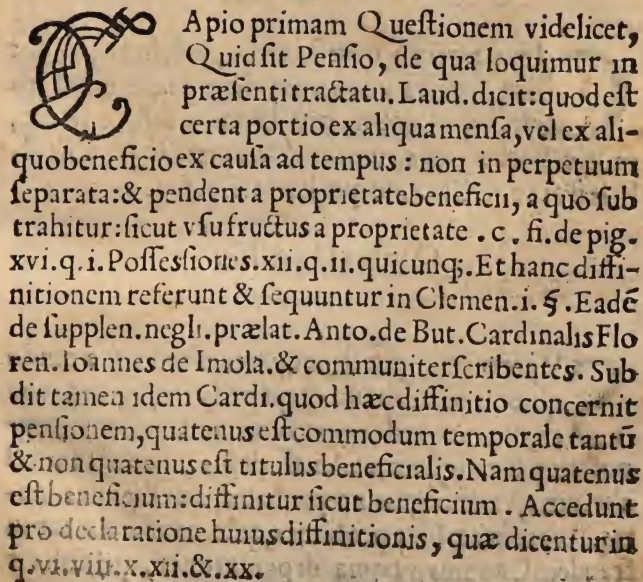 CApio primam Queſtionem videlicet,
Quid ſit Penſio, de qua loquimur in
præſenti tractatu. Laud. dicit: quod eſt
certa portio ex aliqua menſa, vel ex ali-
quo beneficio ex cauſa ad tempus : non in perpetuum
ſeparata: & pendent a proprietate beneficii, a quo ſub
trahitur: ſicut vſufructus a proprietate . c . fi. de pig.
xvi. q. i. Poſſeſſiones. xii. q. ii. quicunq;. Et hanc diffi-
nitionem referunt & ſequuntur in Clemen. i. §. Eadē
de ſupplen. negli. prælat. Anto. de But. Cardinalis Flo
ren. Ioannes de Imola. & communiter ſcribentes. Sub
dit tamen idem Cardi. quod hæc diffinitio concernit
penſionem, quatenus eſt commodum temporale tantū
& non quatenus eſt titulus beneficialis. Nam quatenus
eſt beneficium: diffinitur ſicut beneficium . Accedunt
pro declaratione huius diffinitionis, quæ dicentur in
q. vi. viii. x. xii. & xx.